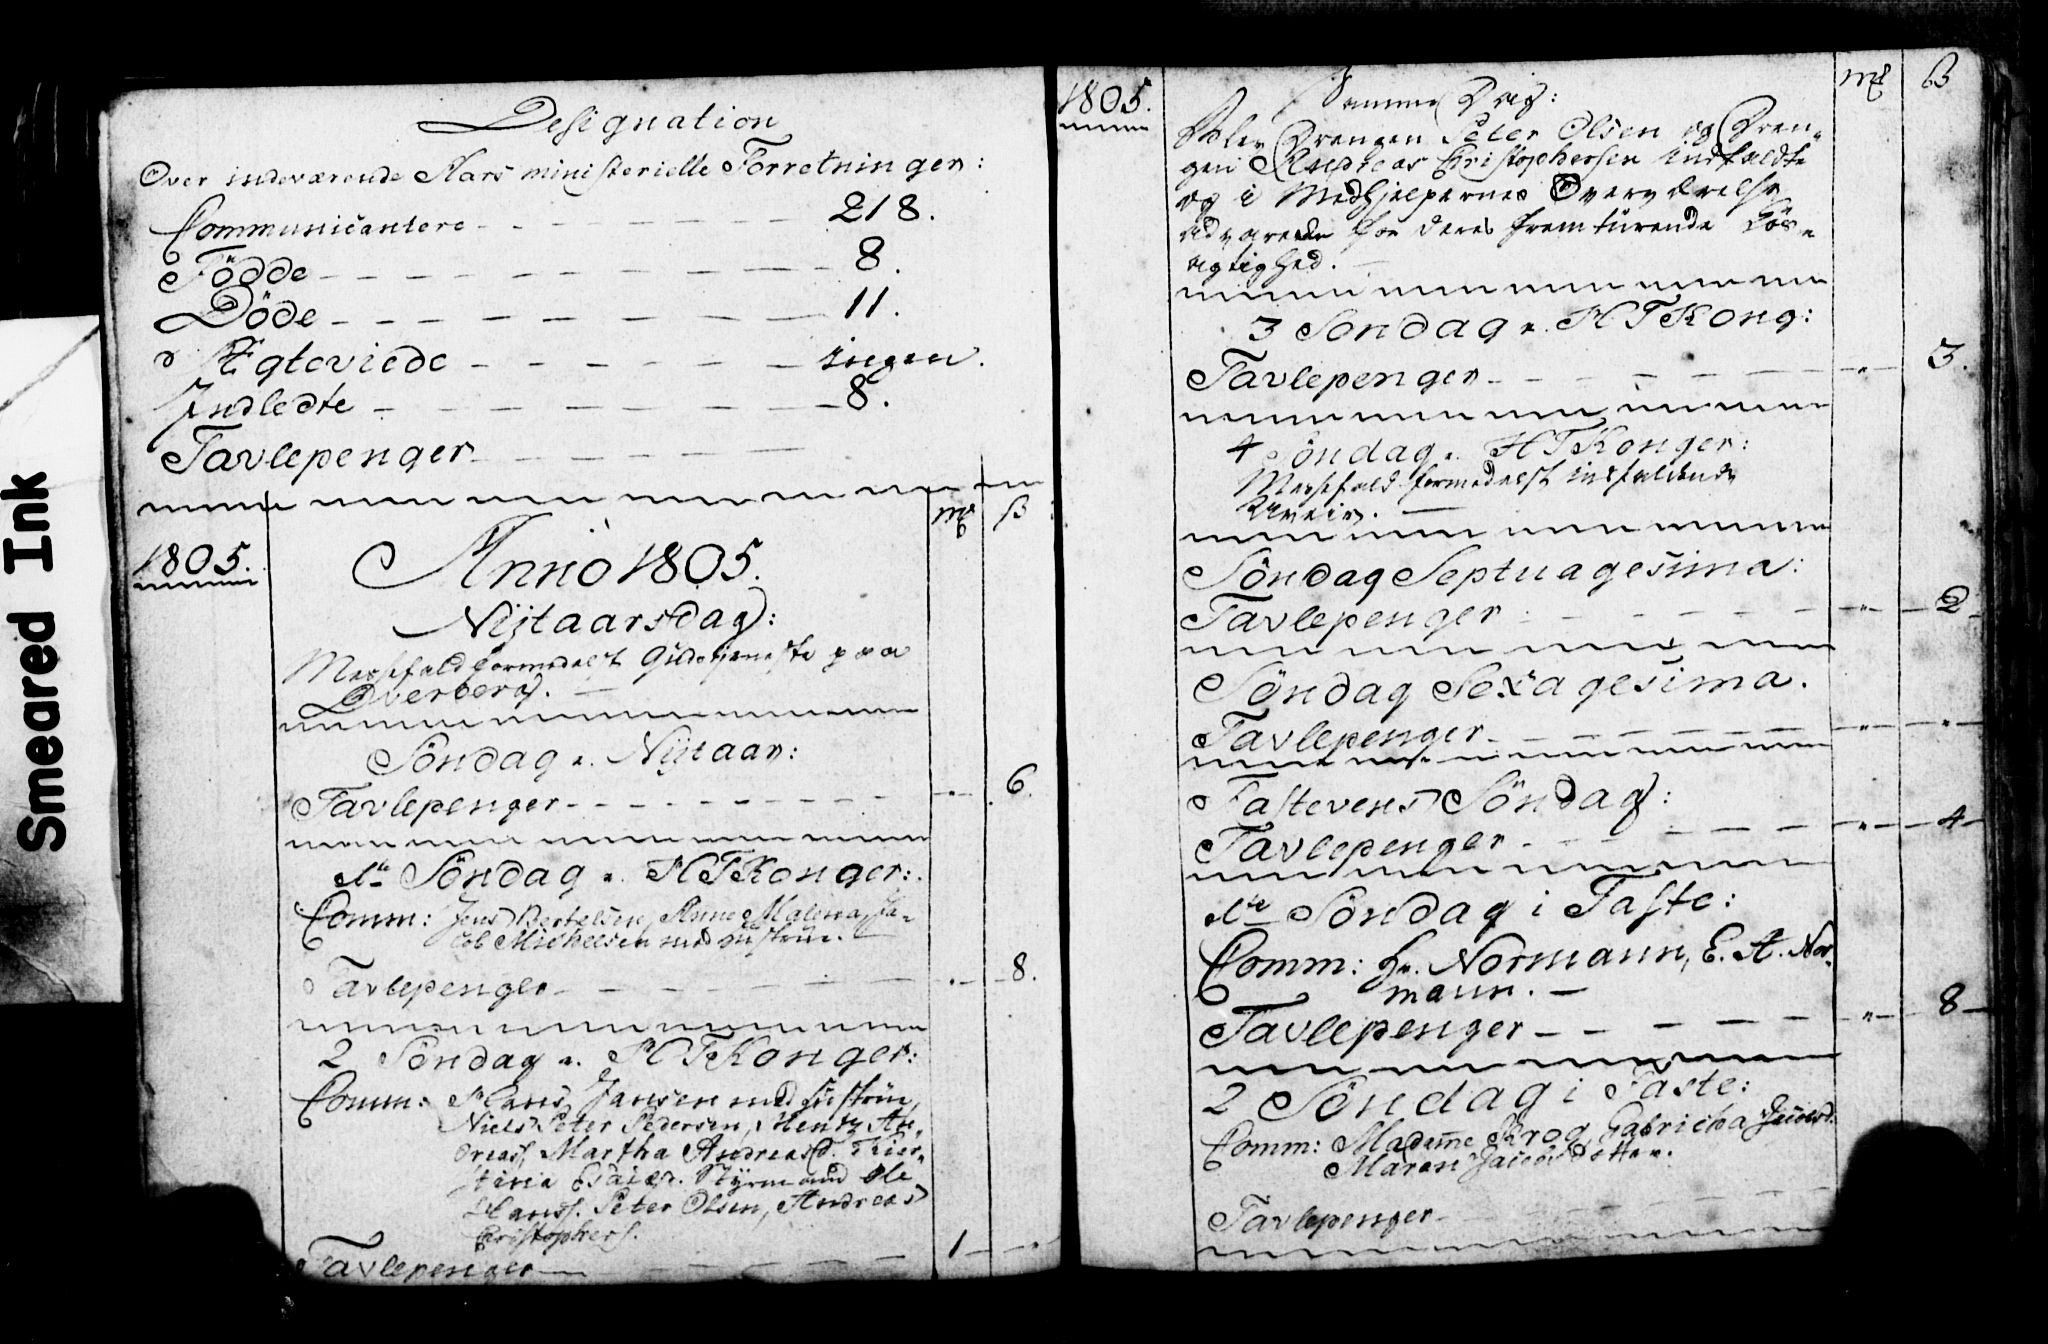 Smeared Ink
Designation
Over indeværende Aars ministerielle Forretninger:
Communicantere - - - 218.
Födde - - - 8.
Döde - - - 11.
Ægteviede - - - ingen.
Indledte - - - 8.
Tavlepenger - - -
mk ß
1805. Anno 1805.
Nÿtaarsdag:
Messefald formedelst Gudstjeneste paa
Dverberg. -
Söndag e. Nÿtaar:
Tavlepenger - - - " - 6.
1te Söndag e. H T Konger:
Comm: Jens Bertelsen, Anne Malena, Ja-
cob Michelsen med Hustrue. -
Tavlepenger - - - " - 8.
2 Söndag e. H T Konger:
Comm: Hans Jansen med Hustrue,
Niels Peter Pedersen, Hentz An-
dreas, Martha Andreasd. Kier-
stina Esaiæd. Stÿrmand Ole
Hanss. Peter Olsen, Andreas
Christophers.
Tavlepenger - - - 1 - "
1805. mk ß
Samme Dag:
Blev Drengen Peter Olsen og Dren-
gen Andreas Christophersen indkaldte
og i Medhjelpernes Overværelse
advarede for deres fremturende Lös-
agtighed. -
3 Söndag e. H T Kong:
Tavlepenger - - - " - 3.
4 Söndag e. H T Konger:
Messefald formedelst indfaldende
Uveir. -
Söndag Septuagesima:
Tavlepenger - - - " - 2 -
Söndag Sexagesima.
Tavlepenger - - - " - " -
Fastevens Söndag:
Tavlepenger - - - " - 4 -
1te Söndag i Faste:
Comm: Hr. Normann, E. A. Nor-
mann. -
Tavlepenger - - - " - 8 -
2 Söndag i Faste:
Comm: Madame Krog, Fabricha Jacobsd.
Maren Jacobsdotter.
Tavlepenger - - -